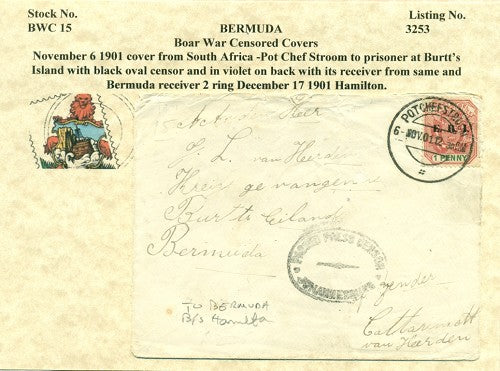 Stock No.
BWC 15
BERMUDA
Listing No.
3253
Boar War Censored Covers
November 6 1901 cover from South Africa -Pot Chef Stroom to prisoner at Burtt's
Island with black oval censor and in violet on back with its receiver from same and
Bermuda receiver 2 ring December 17 1901 Hamilton.
POTCHEFSTROOM
6-NOV.01
E.R.I.
1 PENNY
van Heerden
Krijgs gevangene
Burtts Eiland
Bermuda
PASSED PRESS CENSOR
JOHANNESBURG
TO BERMUDA
B/S Hamilton
van Heerden